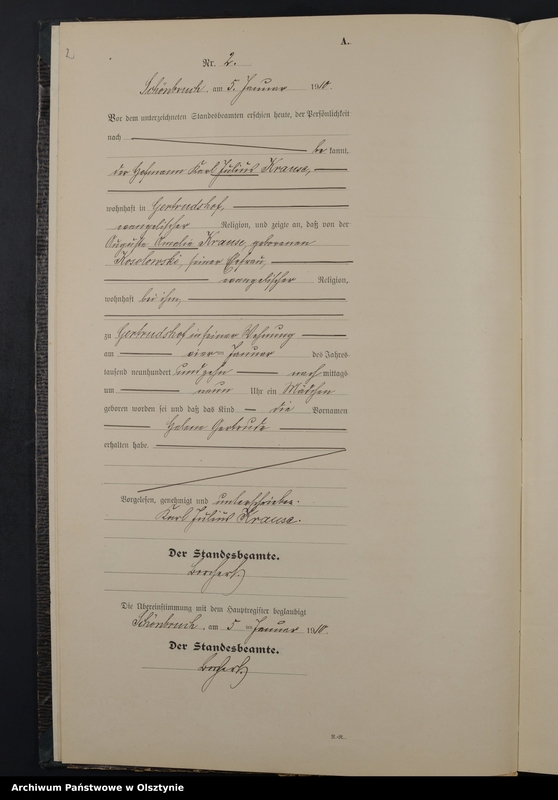 2
A.
Nr. 2.
Schönbruch, am 5. Januar 1910.
Vor dem unterzeichneten Standesbeamten erschien heute, der Persönlichkeit
nach be kannt,
der Hofmann Karl Julius Krause,
wohnhaft in Gertrudshof,
evangelischer Religion, und zeigte an, daß von der
Auguste Amalie Krause, geborenen
Kosolowski, seiner Ehefrau,
evangelischer Religion,
wohnhaft bei ihm,
zu Gertrudshof in seiner Wohnung
am vier Januar des Jahres
tausend neunhundert und zehn nach mittags
um neun Uhr ein Mädchen
geboren worden sei und daß das Kind die Vornamen
Helene Gertrude
erhalten habe.
Vorgelesen, genehmigt und unterschrieben.
Karl Julius Krause.
Der Standesbeamte.
Borchert.
Die Übereinstimmung mit dem Hauptregister beglaubigt
Schönbruch, am 5 Januar 1910.
Der Standesbeamte.
Borchert.
Archiwum Państwowe w Olsztynie